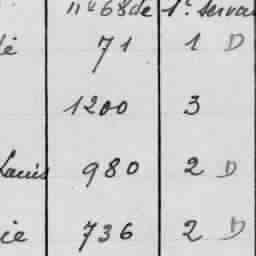 n° 68 de 1r. serva
é 71 1 D
1200 3
Louis 980 2 D
ie 736 2 D